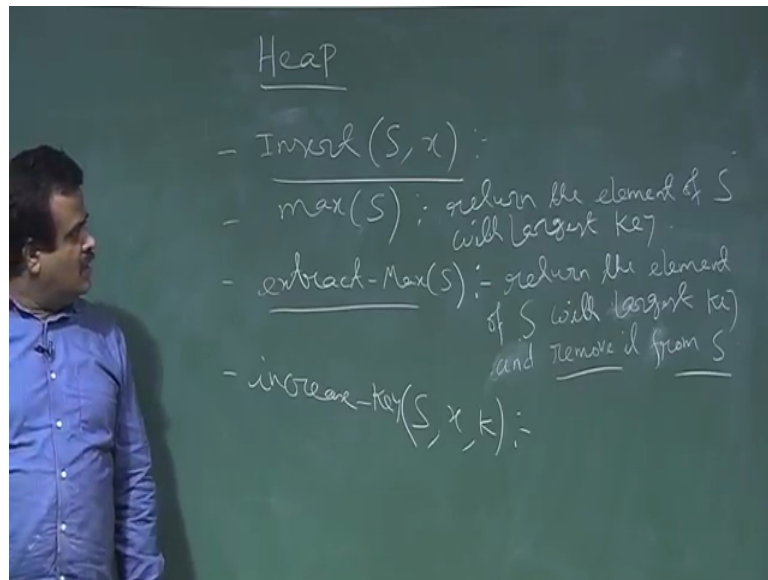 Heap
- Insert (S, x) :-
- max(S) :- return the element of S
will Largest Key.
- extract-Max(S) :- return the element
of S will largest key
and remove it from S
- increase-Key(S, x, k) :-